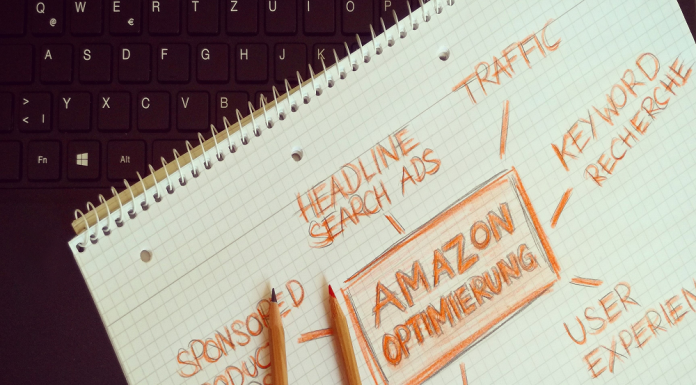 Q W E R T Z U I O P
@ €
A S D F G H J K
> Y X C V B
< |
Fn Alt
TRAFFIC
KEYWORD
RECHERCHE
HEADLINE
SEARCH ADS
AMAZON
OPTIMIERUNG
SPONSORED
USER